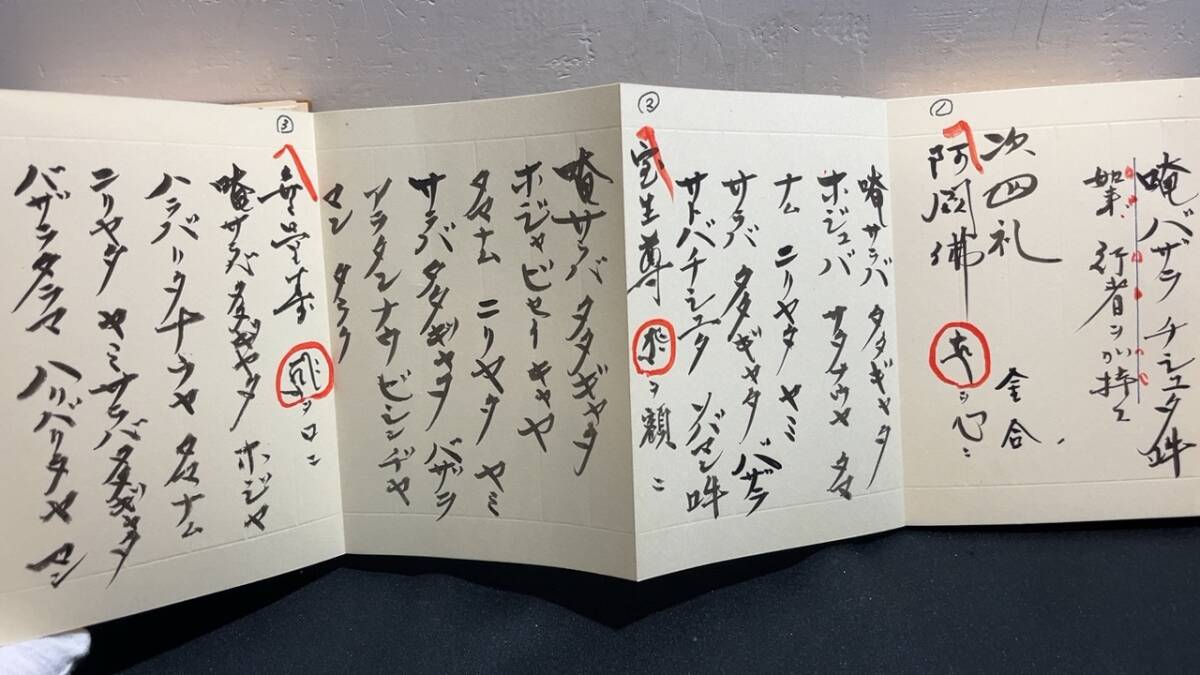 唵バザラ チシュタ吽
行者ヲ加持ス
次四礼
①
阿閦佛 ヲ心ニ 金合
唵サラバ タタギャタ
ホジュバ サタナウヤ タマ
ナム ニリヤタ ヤミ
サラバ タタギャタ バザラ
サトバチシュタ ソバマン吽
②
宝生尊 ヲ額ニ
唵サラバ タタギャタ
ホジャビセイキャヤ
タマナム ニリヤタ ヤミ
サラバ タタギャタ バザラ
アラタンナウ ビシンヂャ
マン タラク
③
無量寿 ヲロニ
唵サラバ タタギャタ ホジャ
ハラバリタナウヤ タマナム
ニリヤタ ヤミサラバタタギャタ
バザラタラマ ハリバリタヤ マン